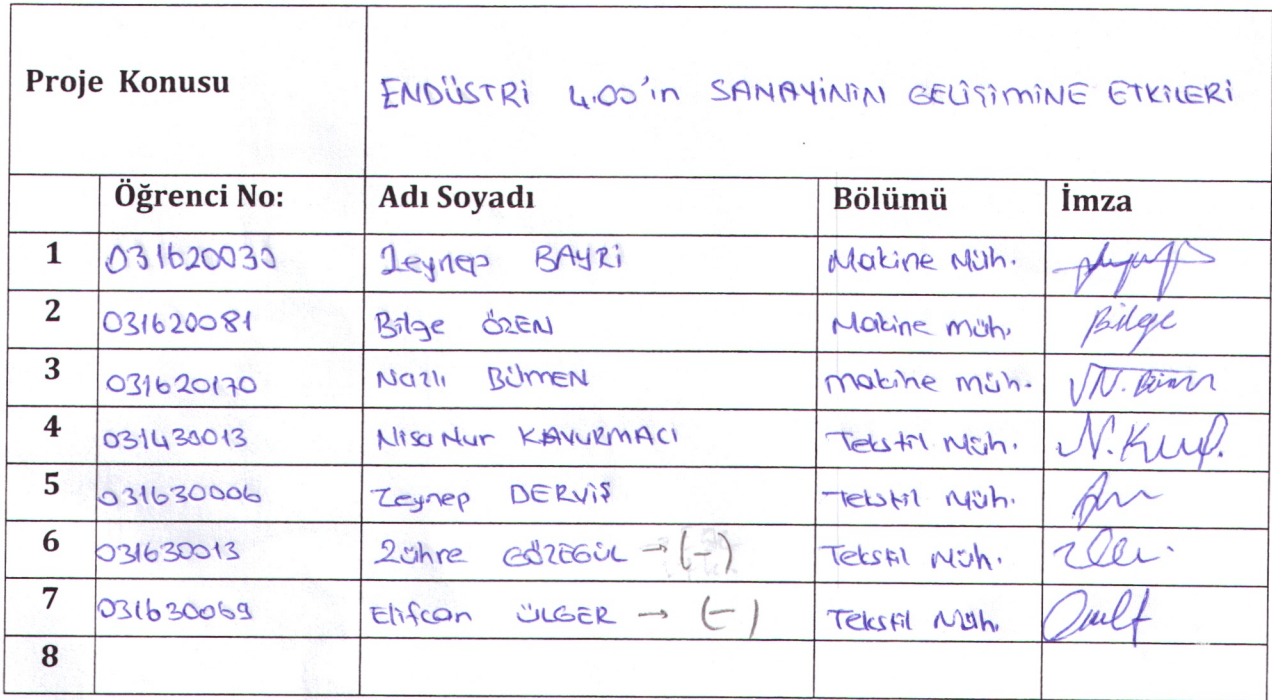 Proje Konusu ENDÜSTRİ 4.00'ın SANAYİNİN GELİŞİMİNE ETKİLERİ
Öğrenci No: Adı Soyadı Bölümü İmza
1 031620030 Zeynep BAYRİ Makine Müh.
2 031620081 Bilge ÖZEN Makine müh. Bilge
3 031620170 Nazlı BÜMEN makine müh.
4 031430013 Nisa Nur KAVURMACI Tekstil Müh.
5 031630006 Zeynep DERVİŞ Tekstil Müh.
6 031630013 Zühre GÖZEGÜL → (-) Tekstil Müh.
7 031630069 Elifcan ÜLGER → (-) Tekstil Müh.
8